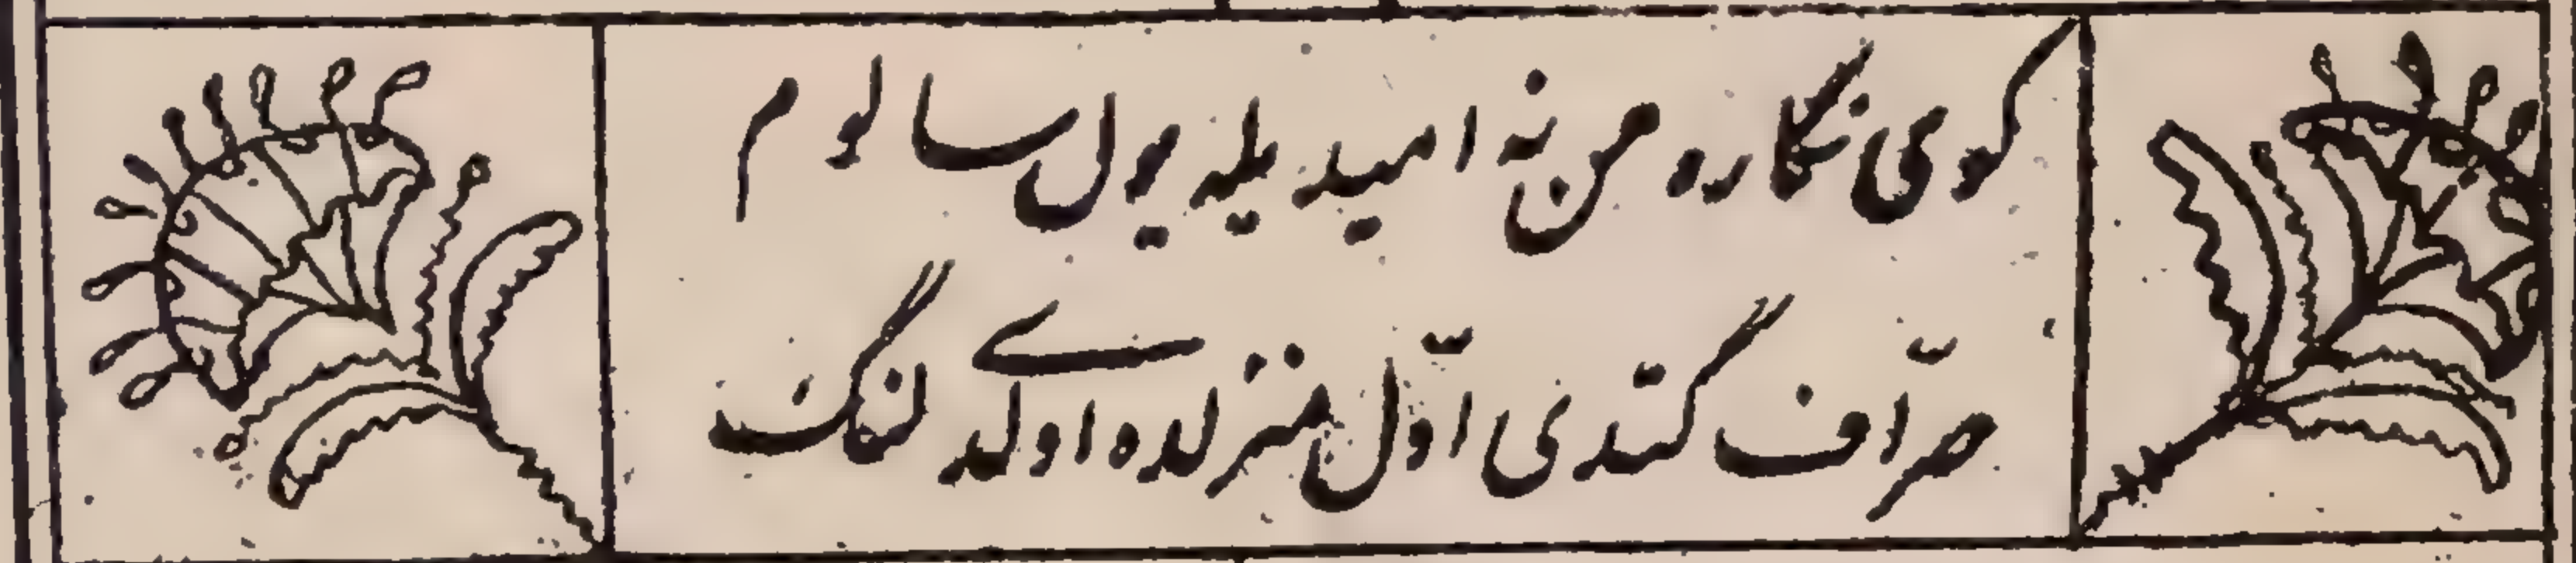 کوی نگاره من نه امیدیله یول سالوم
صرّاف گتدی اوّل منزلده اولدی لنگ